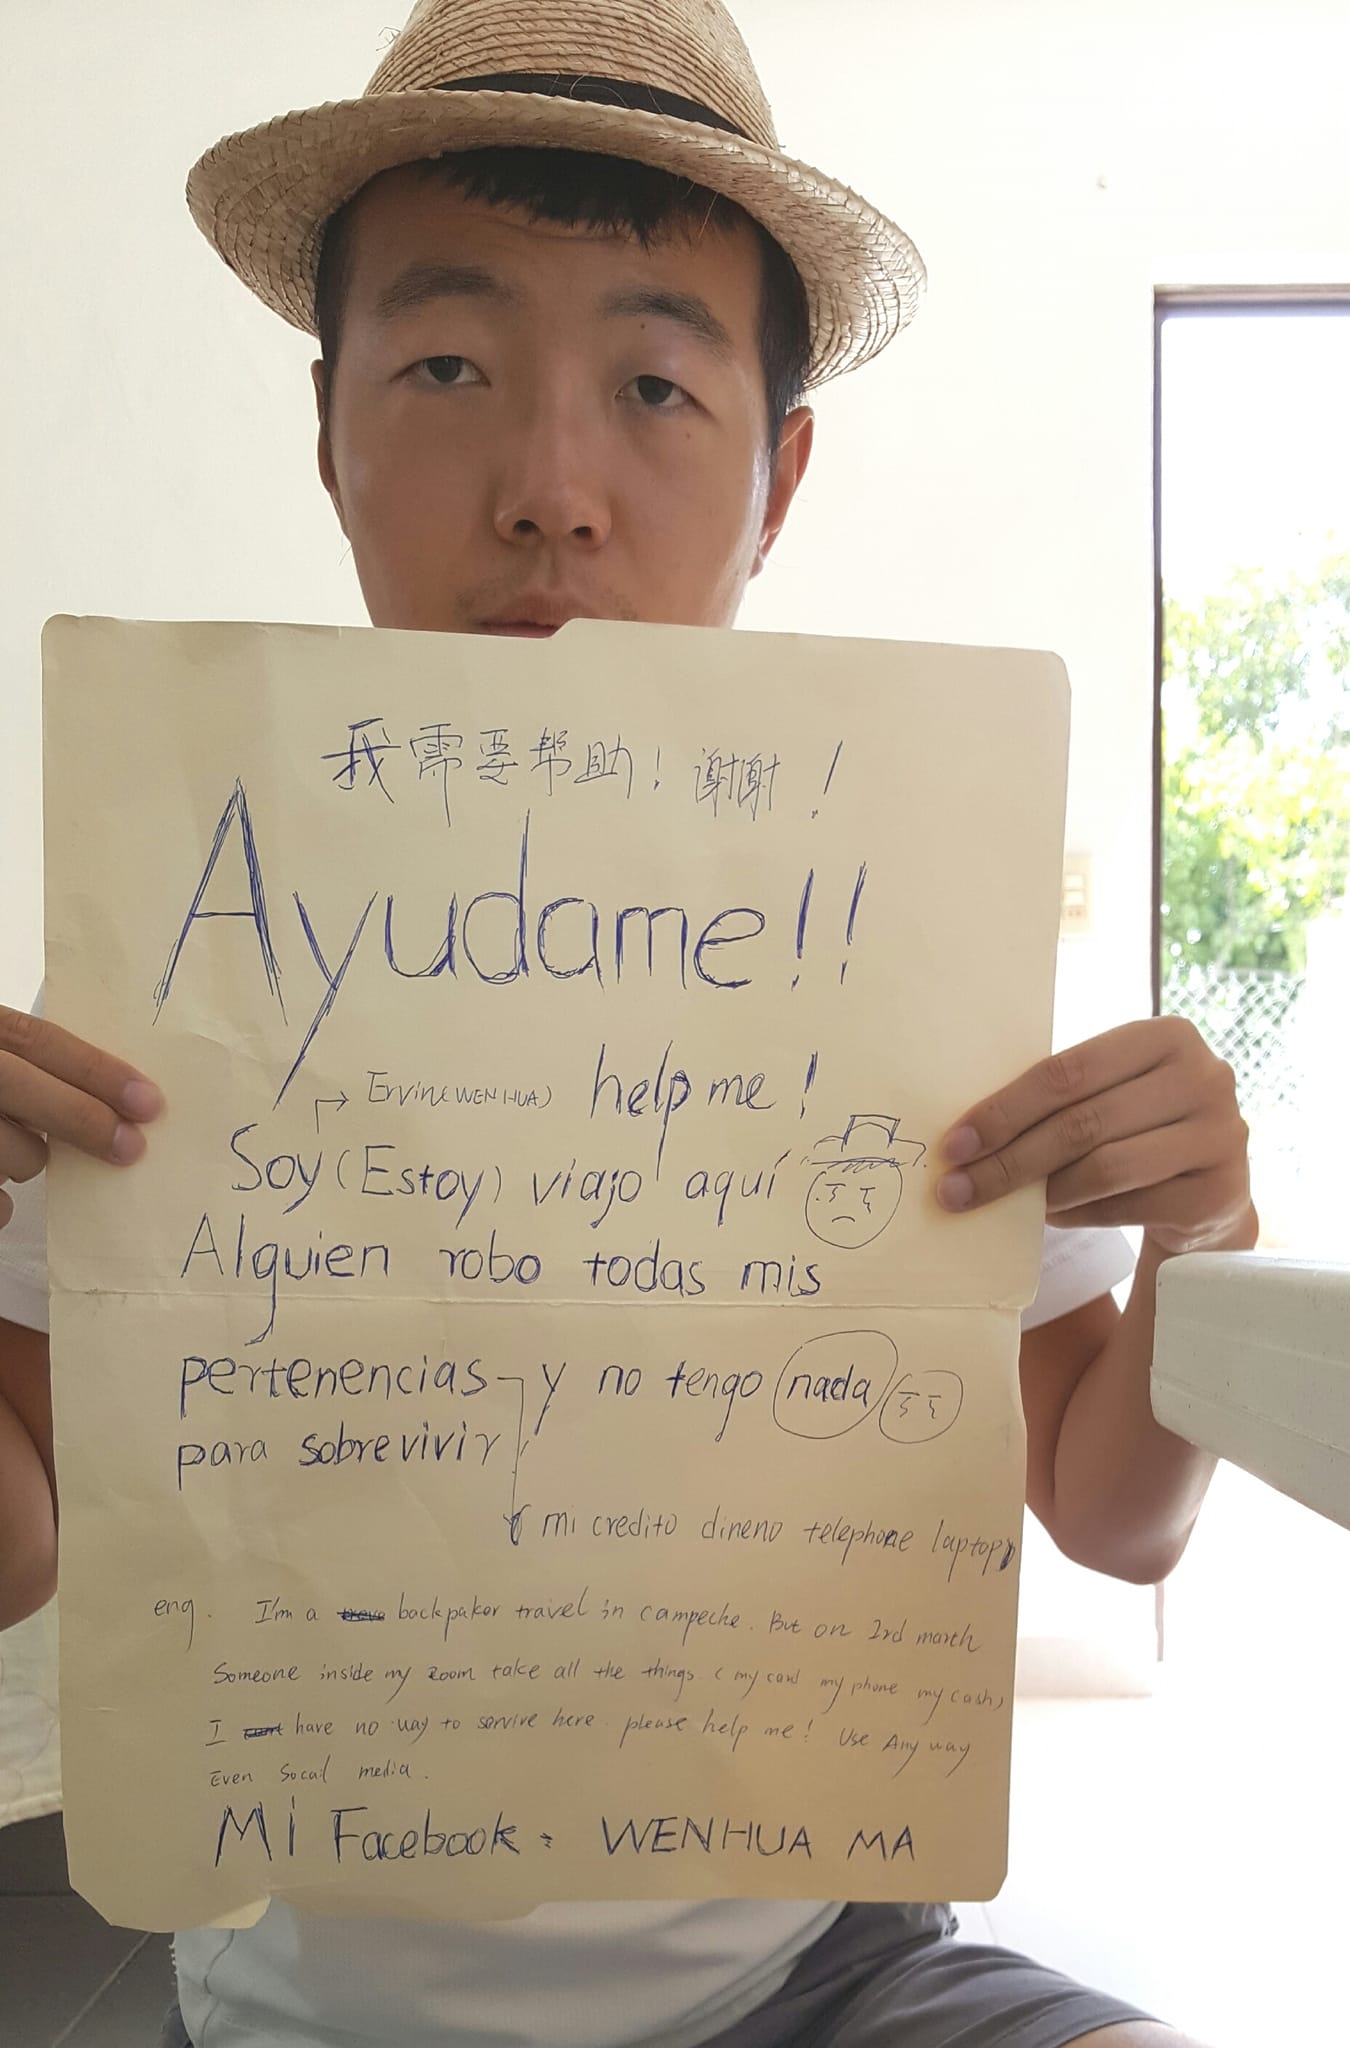 我需要帮助！谢谢！
Ayudame!!
→ Ervin(WENHUA) help me!
Soy (Estoy) viajo aquí
Alguien robo todas mis
pertenencias y no tengo nada
para sobrevivir
mi credito dineno telephone laptop
eng. I'm a backpaker travel in campeche. But on 3rd march
Someone inside my room take all the things (my card my phone my cash)
I have no way to servire here. please help me! Use Any way
Even Socail media.
Mi Facebook: WENHUA MA